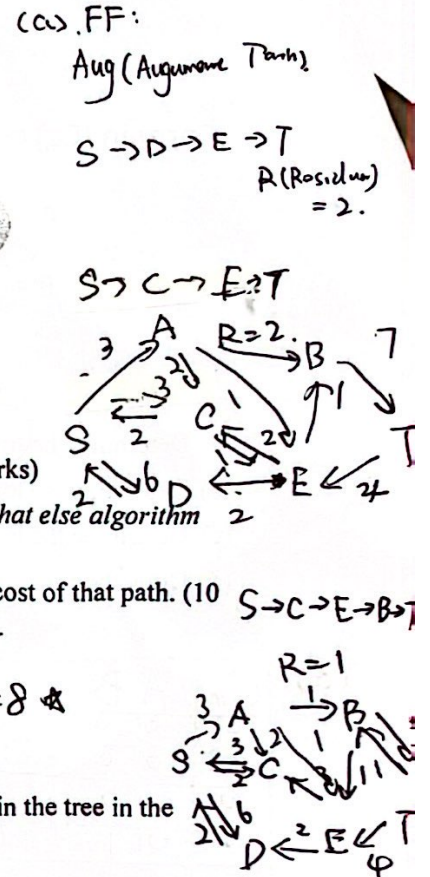 (a). FF:
Aug (Augument Path)
S → D → E → T
R(Residur)
= 2.
S → C → E → T
R = 2.
3 A B 7
2
3 1
S 2 C 2 1 T
rks)
2 6 D E 4
hat else algorithm 2
cost of that path. (10
S→C→E→B→T
R=1
=8
3 A 1 B
S 3 2 C 1 11
2
in the tree in the
2 6
D 2 E T
4